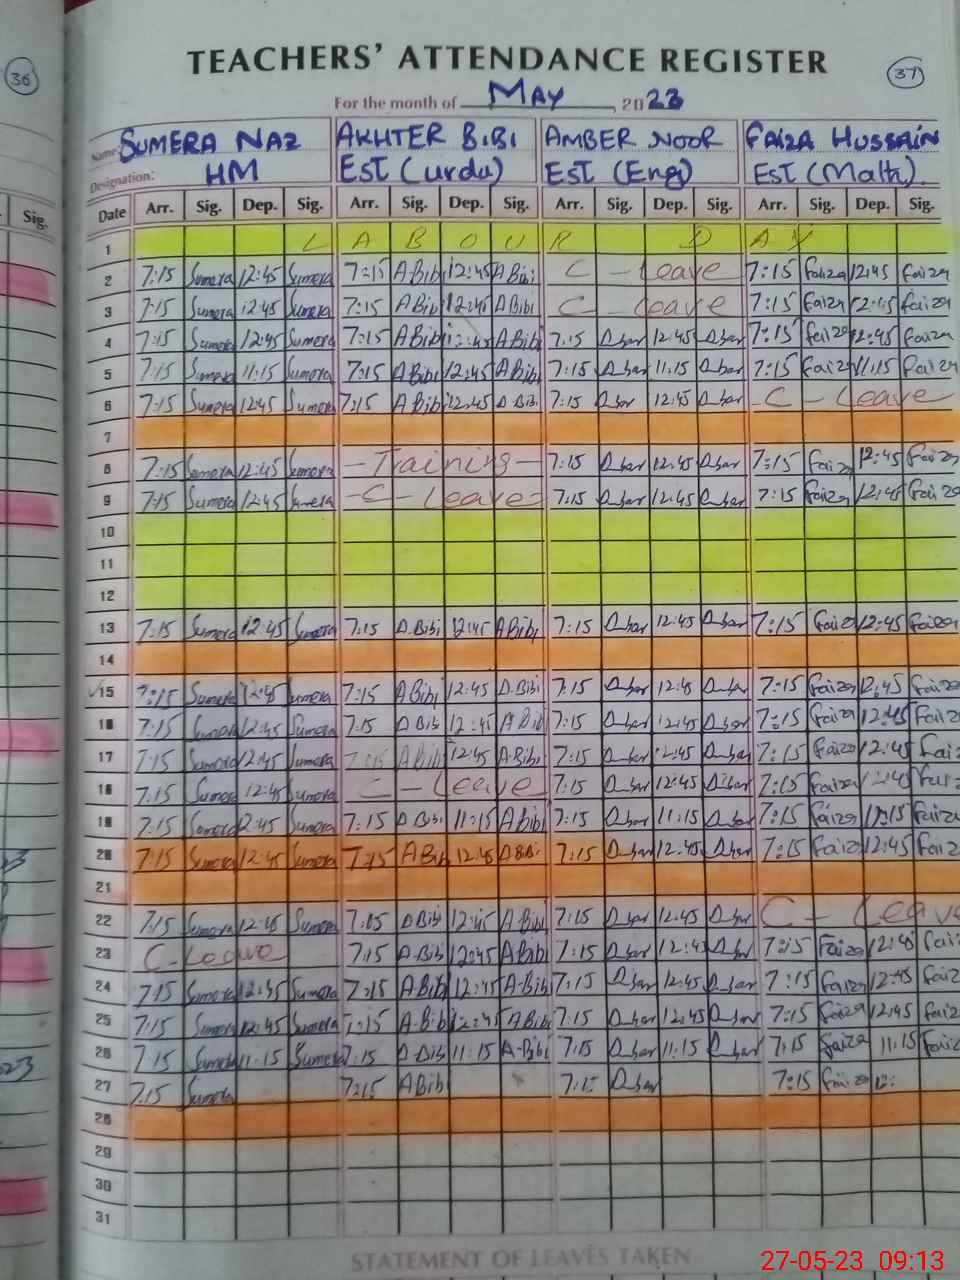 36
TEACHERS' ATTENDANCE REGISTER
37
For the month of MAY, 2023
Name: SUMERA NAZ AKHTER BIBI AMBER NOOR FAIZA HUSSAIN
Designation: HM EST (urdu) EST (Eng) EST (Math).
Sig. Date Arr. Sig. Dep. Sig. Arr. Sig. Dep. Sig. Arr. Sig. Dep. Sig. Arr. Sig. Dep. Sig.
1 LABOUR DAY
2 7:15 Sumera 12:45 Sumera 7:15 A Bibi 12:45 A Bibi C - Leave 7:15 Faiza 12:45 Faiza
3 7:15 Sumera 12:45 Sumera 7:15 A Bib 12:45 A Bibi C - Leave 7:15 Faiza 12:45 Faiza
4 7:15 Sumera 12:45 Sumera 7:15 A Bibi 12:45 A Bibi 7:15 12:45 7:15 Faiza 12:45 Faiza
5 7:15 Sumera 11:15 Sumera 7:15 A Bibi 12:45 A Bibi 7:15 11:15 7:15 Faiza 11:15 Faiza
6 7:15 Sumera 12:45 Sumera 7:15 A Bib 12:45 A Bibi 7:15 12:45 C - Leave
7
8 7:15 Sumera 12:45 Sumera - Training - 7:15 12:45 7:15 Faiza 12:45 Faiza
9 7:15 Sumera 12:45 Sumera - C - Leave 7:15 12:45 7:15 Faiza 12:45 Faiza
10
11
12
13 7:15 Sumera 12:45 Sumera 7:15 A.Bibi 12:45 A Bibi 7:15 12:45 7:15 Faiza 12:45 Faiza
14
15 7:15 Sumera 12:45 Sumera 7:15 A Bibi 12:45 A.Bibi 7:15 12:45 7:15 Faiza 12:45 Faiza
16 7:15 Sumera 12:45 Sumera 7:15 A Bibi 12:45 A Bibi 7:15 12:45 7:15 Faiza 12:45 Faiza
17 7:15 Sumera 12:45 Sumera 7:15 A Bibi 12:45 A-Bibi 7:15 12:45 7:15 Faiza 12:45 Faiz
18 7:15 Sumera 12:45 Sumera C - Leave 7:15 12:45 7:15 Faiza Faiz
19 7:15 Sumera 12:45 Sumera 7:15 A Bibi 11:15 A Bibi 7:15 11:15 7:15 Faiza 11:15 Faiza
20 7:15 Sumera 12:45 Sumera 7:15 A Bib 12:45 A Bibi 7:15 12:45 7:15 Faiza 12:45 Faiz
21
22 7:15 Sumera 12:45 Sumera 7:15 A Bibi 12:45 A Bibi 7:15 12:45 C - Leave
23 C-Leave 7:15 A-Bibi 12:45 A Bibi 7:15 12:45 7:15 Faiza 12:45 Faiz
24 7:15 Sumera 12:45 Sumera 7:15 A Bibi 12:45 A-Bibi 7:15 12:45 7:15 Faiza 12:45 Faiz
25 7:15 Sumera 12:45 Sumera 7:15 A-Bibi 12:45 A Bibi 7:15 12:45 7:15 Faiza 12:45 Faiz
26 7:15 Sumera 11:15 Sumera 7:15 A-Bibi 11:15 A-Bibi 7:15 11:15 7:15 Faiza 11:15 Faiz
27 7:15 Sumera 7:15 A Bibi 7:15 Faiza
28
29
30
31
STATEMENT OF LEAVES TAKEN
27-05-23 09:13